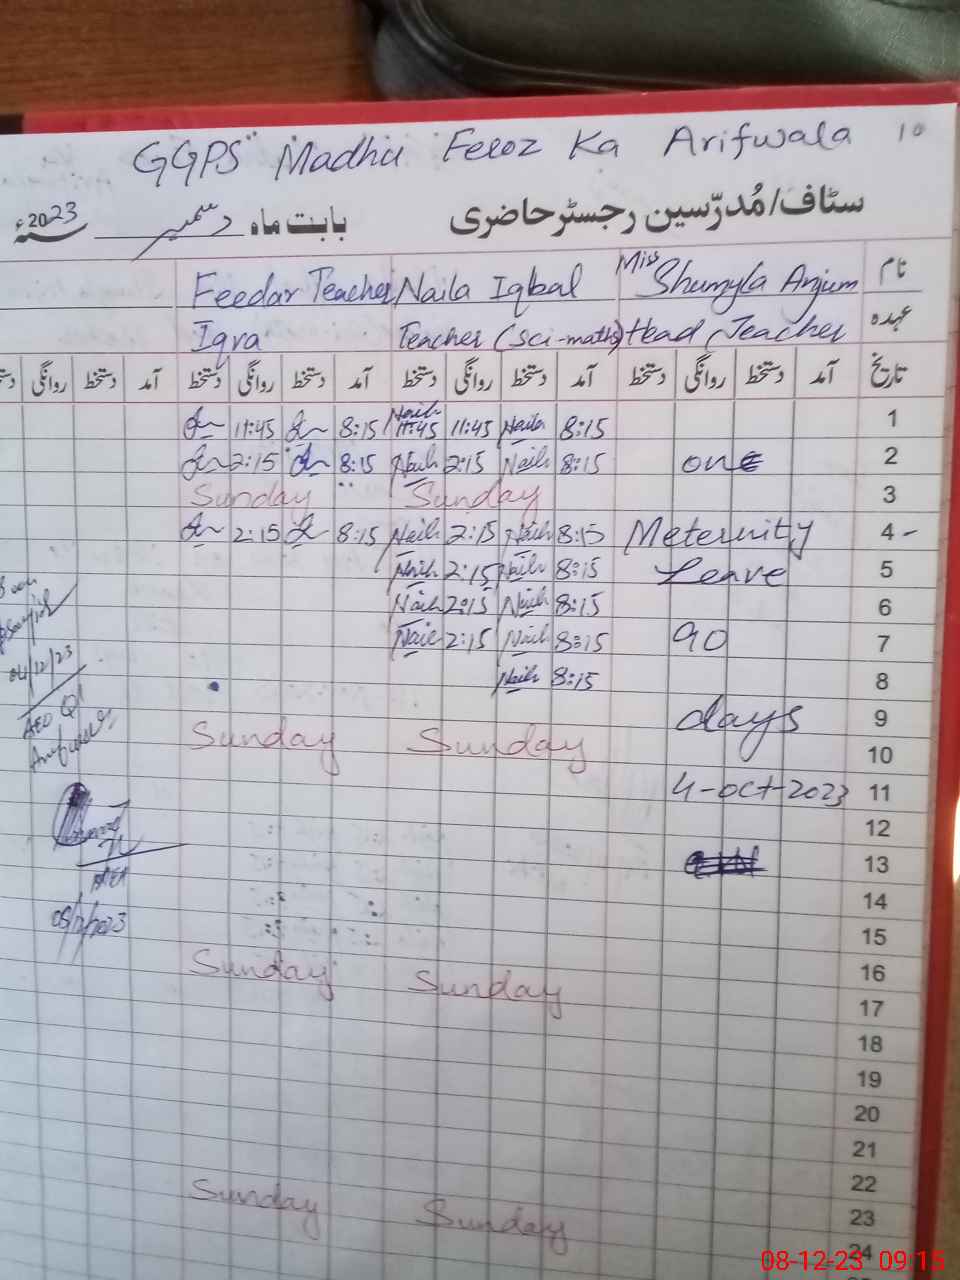 GGPS Madhu Feroz Ka Arifwala 10
سٹاف/مُدرّسین رجسٹر حاضری بابت ماہ دسمبر 2023ء
نام Miss Shumyla Anjum Naila Iqbal Feedar Teacher
عہدہ Head Teacher Teacher (Sci-maths) Iqra
تاریخ آمد دستخط روانگی دستخط آمد دستخط روانگی دستخط آمد دستخط روانگی دستخط آمد دستخط روانگی
11:45 8:15 11:45 11:45 Naila 8:15 1
2:15 8:15 Naila 2:15 Naila 8:15 one 2
Sunday Sunday 3
2:15 8:15 Naila 2:15 Naila 8:15 Meternity 4 -
Naila 2:15 Naila 8:15 Leave 5
Naila 2:15 Naila 8:15 6
Naila 2:15 Naila 8:15 90 7
Naila 8:15 8
days 9
Sunday Sunday 10
4-oct-2023 11
12
13
14
15
Sunday Sunday 16
17
18
19
20
21
22
Sunday Sunday 23
24
04/12/23
AEO
08-12-23 09:15